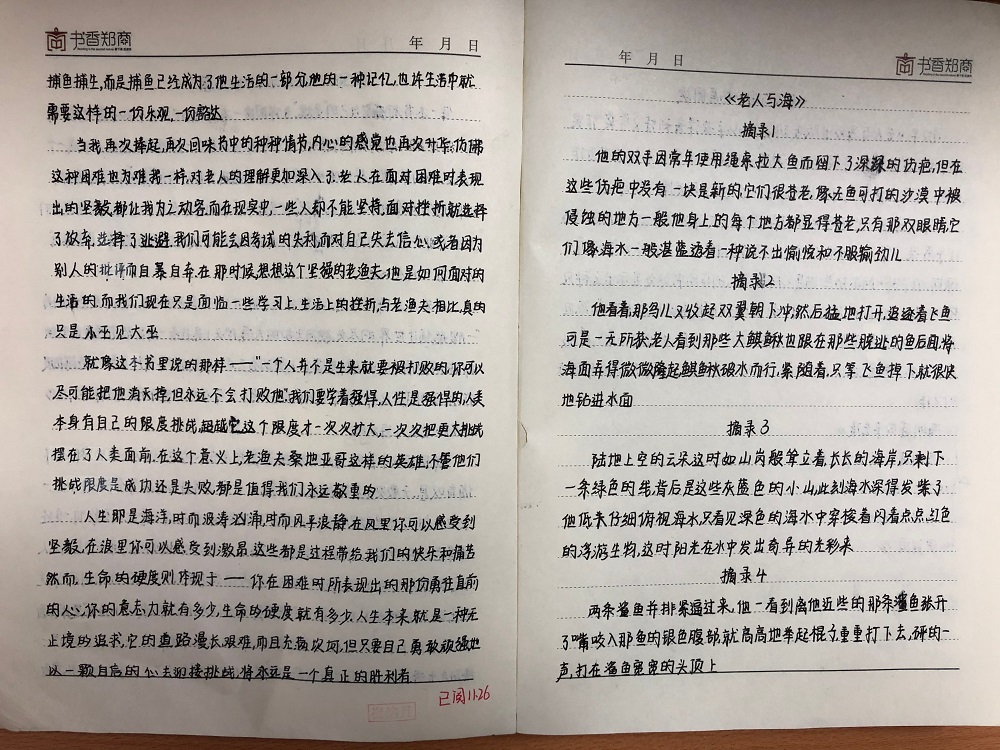 书香郑商
年 月 日
捕鱼捕生,而是捕鱼已经成为了他生活的一部分他的一种记忆,也许生活中就
需要这样的一份乐观,一份豁达
当我再次捧起,再次回味书中的种种情节,内心的感觉也再次升华,仿佛
这种困难也为难我一样,对老人的理解更加深入了.老人在面对困难时表现
出的坚毅,都让我为之动容,而在现实中,一些人却不能坚持,面对挫折就选择
了放弃,选择了逃避.我们可能会因考试的失利,而对自己失去信心,或者因为
别人的批评而自暴自弃.在那时候,想想这个坚强的老渔夫,他是如何面对的
生活的,而我们现在只是面临一些学习上,生活上的挫折,与老渔夫相比,真的
只是小巫见大巫
就像这本书里说的那样——"一个人并不是生来就要被打败的,你可以
尽可能把他消灭掉,但永远不会打败他"我们要学着强悍,人性是强悍的,人类
本身有自己的限度挑战,超越它这个限度才一次次扩大,一次次把更大挑战
摆在了人类面前.在这个意义上,老渔夫桑地亚哥这样的英雄,不管他们
挑战限度是成功还是失败,都是值得我们永远敬重的
人生即是海洋,时而波涛汹涌,时而风平浪静.在风里你可以感受到
坚毅,在浪里你可以感受到激昂.这些都是过程带给我们的快乐和痛苦
然而,生命的硬度则体现于——你在困难时所表现出的那份勇往直前
的心,你的意志力就有多少,生命的硬度就有多少.人生本来就是一种无
止境的追求,它的道路漫长艰难,而且充满坎坷,但只要自己勇敢顽强地
以一颗自信的心去迎接挑战,将永远是一个真正的胜利者
已阅11.26
年 月 日
书香郑商
《老人与海》
摘录1
他的双手因常年使用绳索拉大鱼而留下了深深的伤疤,但在
这些伤疤中没有一块是新的,它们很苍老,像无鱼可打的沙漠中被
侵蚀的地方一般.他身上的每个地方都显得苍老,只有那双眼睛,它
们像海水一般湛蓝,透着一种说不出愉悦和不服输劲儿
摘录2
他看着,那鸟儿又收起双翼朝下冲,然后猛地打开,追逐着飞鱼
可是一无所获.老人看到那些大鲯鳅也跟在那些脱逃的鱼后面,将
海面弄得微微隆起,鲯鳅破水而行,紧随着,只等飞鱼掉下,就很快
地钻进水面
摘录3
陆地上空的云朵这时如山岗般耸立着,长长的海岸,只剩下
一条绿色的线,背后是这些灰蓝色的小山,此刻海水深得发紫了
他低头仔细俯视海水,只看见深色的海水中穿梭着闪着点点红色
的浮游生物,这时阳光在水中发出奇异的光彩来
摘录4
两条鲨鱼并排紧逼过来,他一看到离他近些的那条鲨鱼张开
了嘴咬入那鱼的银色腹部,就高高地举起棍子,重重打下去,砰的一
声,打在鲨鱼宽宽的头顶上